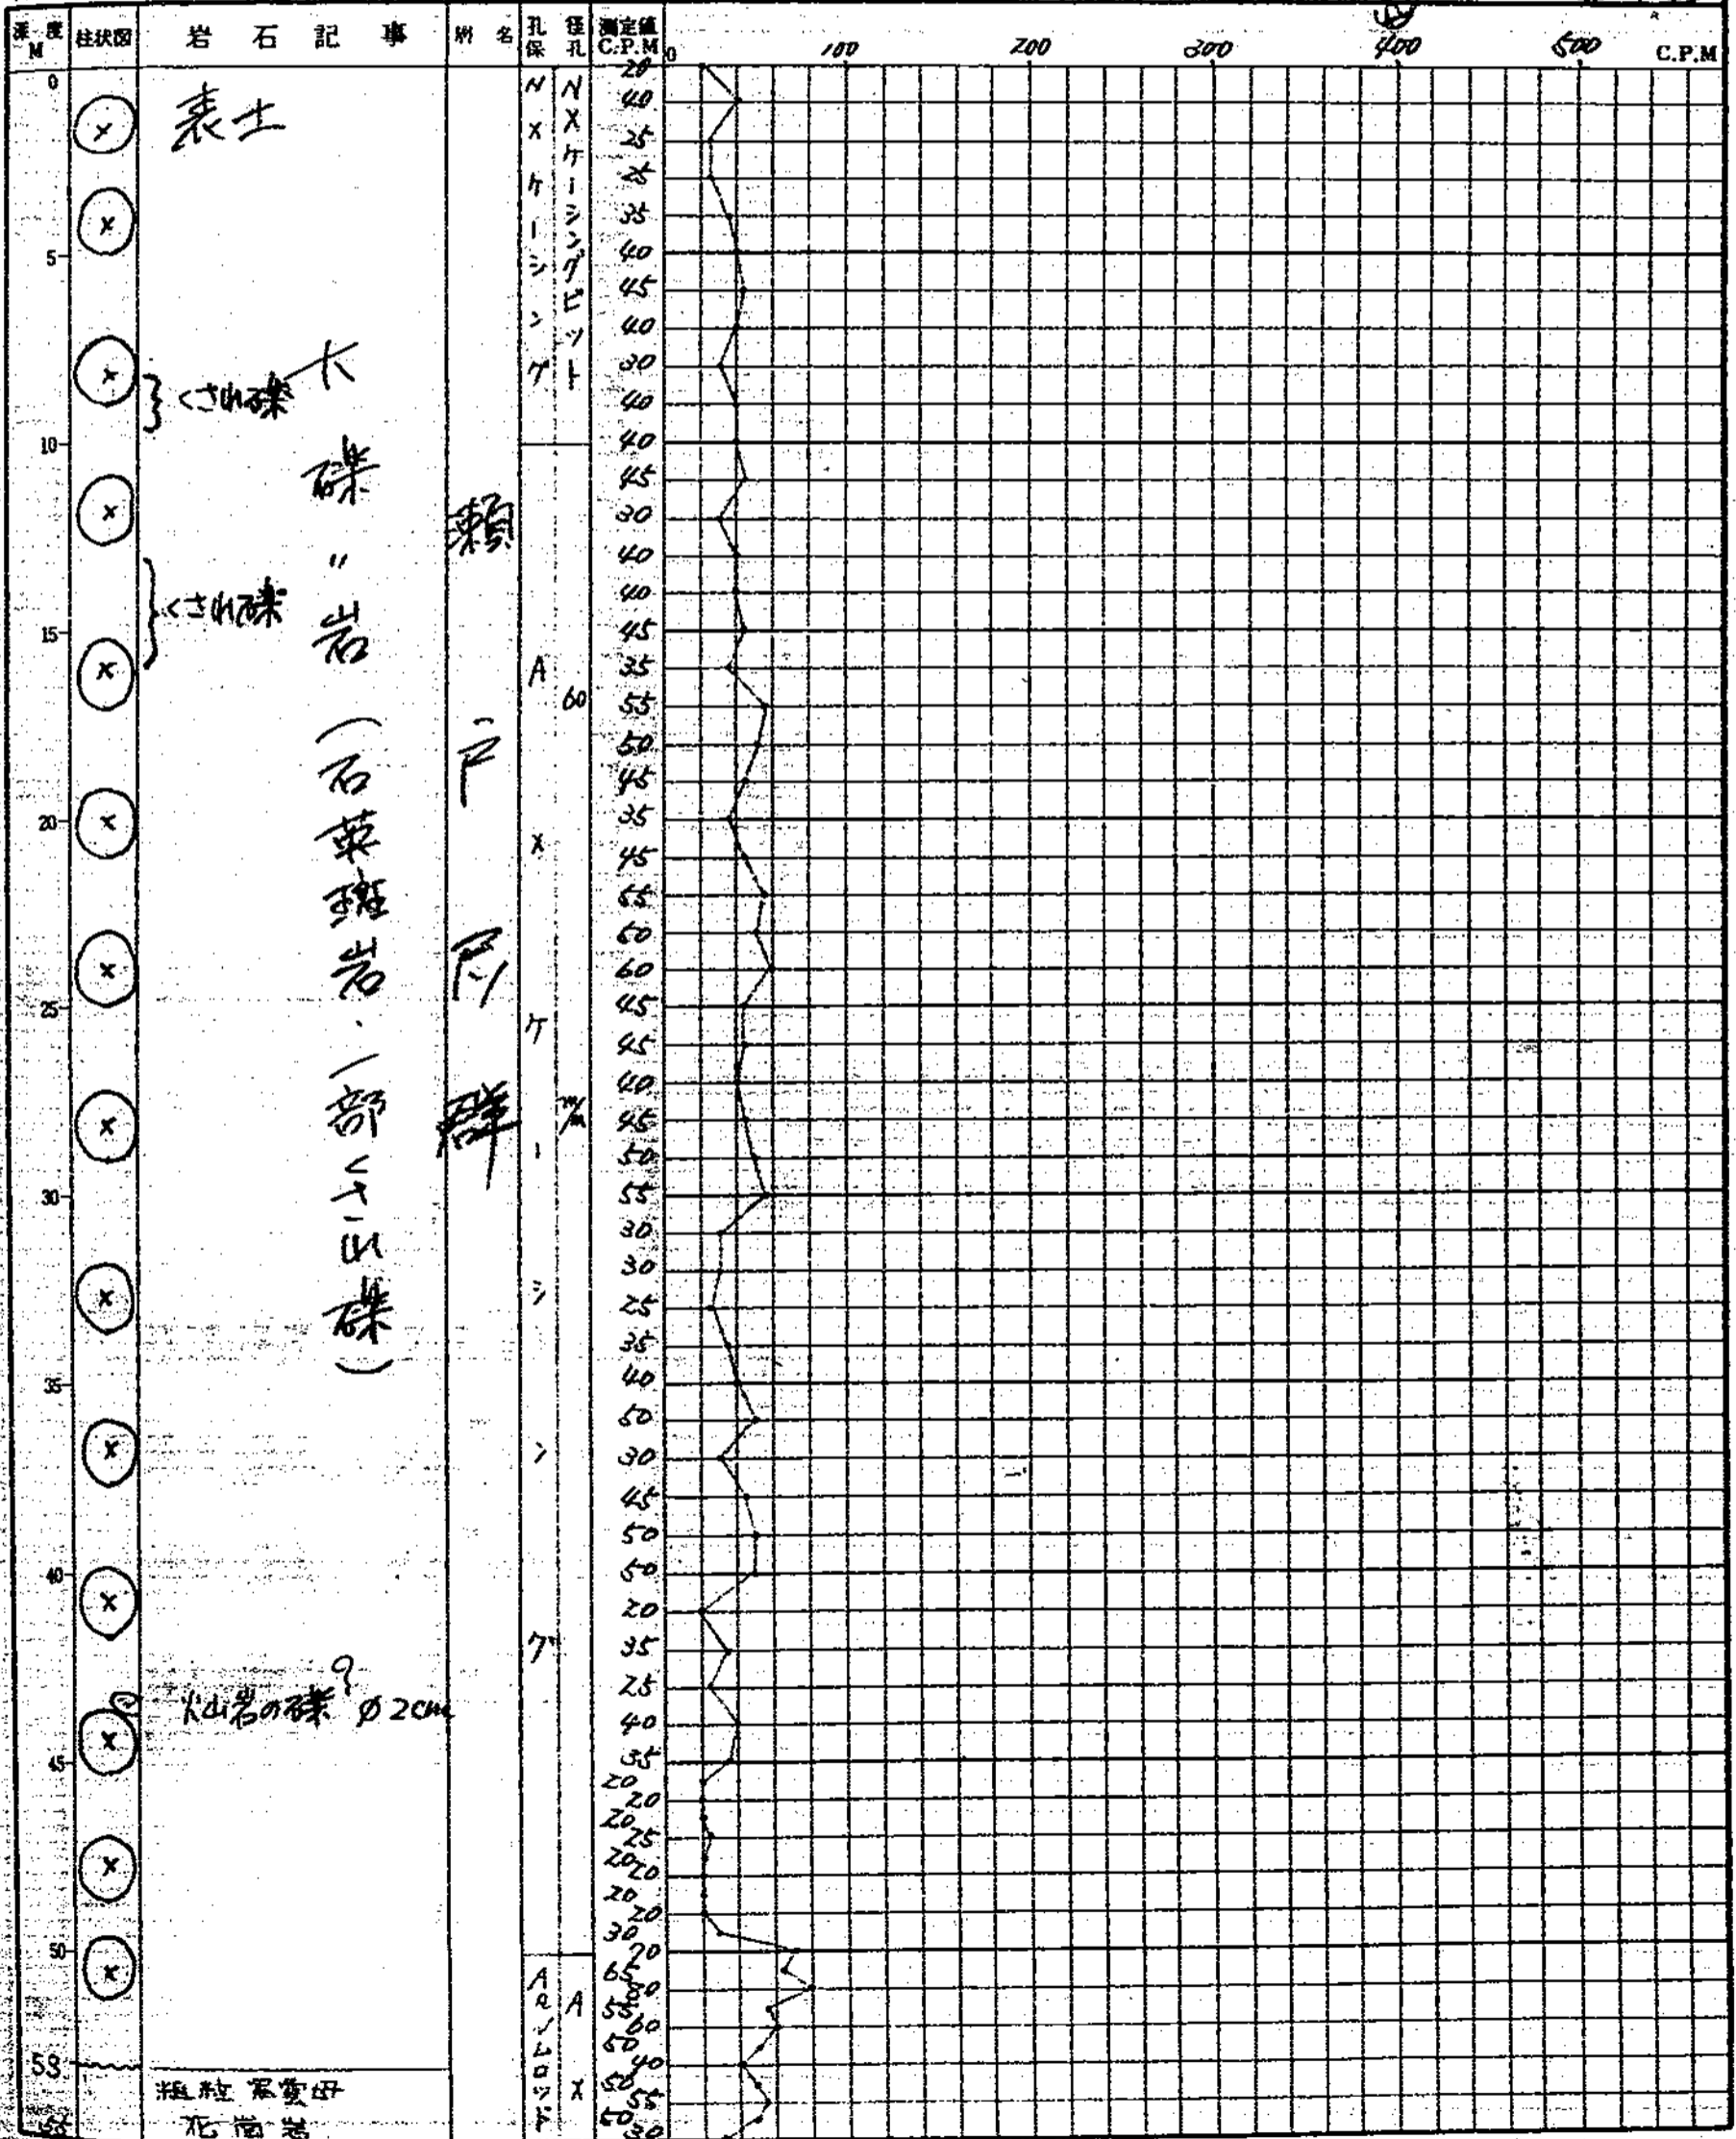 深度 M 柱状図 岩石記事 層名 孔保 径孔 測定値 C.P.M 0 100 200 300 400 500 C.P.M
0
5
10
15
20
25
30
35
40
45
50
53
表土
くされ礫
くされ礫
大礫〃岩(石英斑岩・一部くされ礫)
火山岩の礫? φ2cm
粗粒黒雲母
花崗岩
瀬戸層群
NXケーシング
AXケーシング
NXケーシングビット
60
m/m
AX
20
40
25
25
35
40
45
40
30
40
40
45
30
40
40
45
35
55
50
45
35
45
55
50
60
45
45
40
45
50
55
30
30
25
35
40
50
30
45
50
50
20
35
25
40
35
20
20
20
25
20
20
20
20
30
70
65
80
55
60
50
40
50
55
50
30